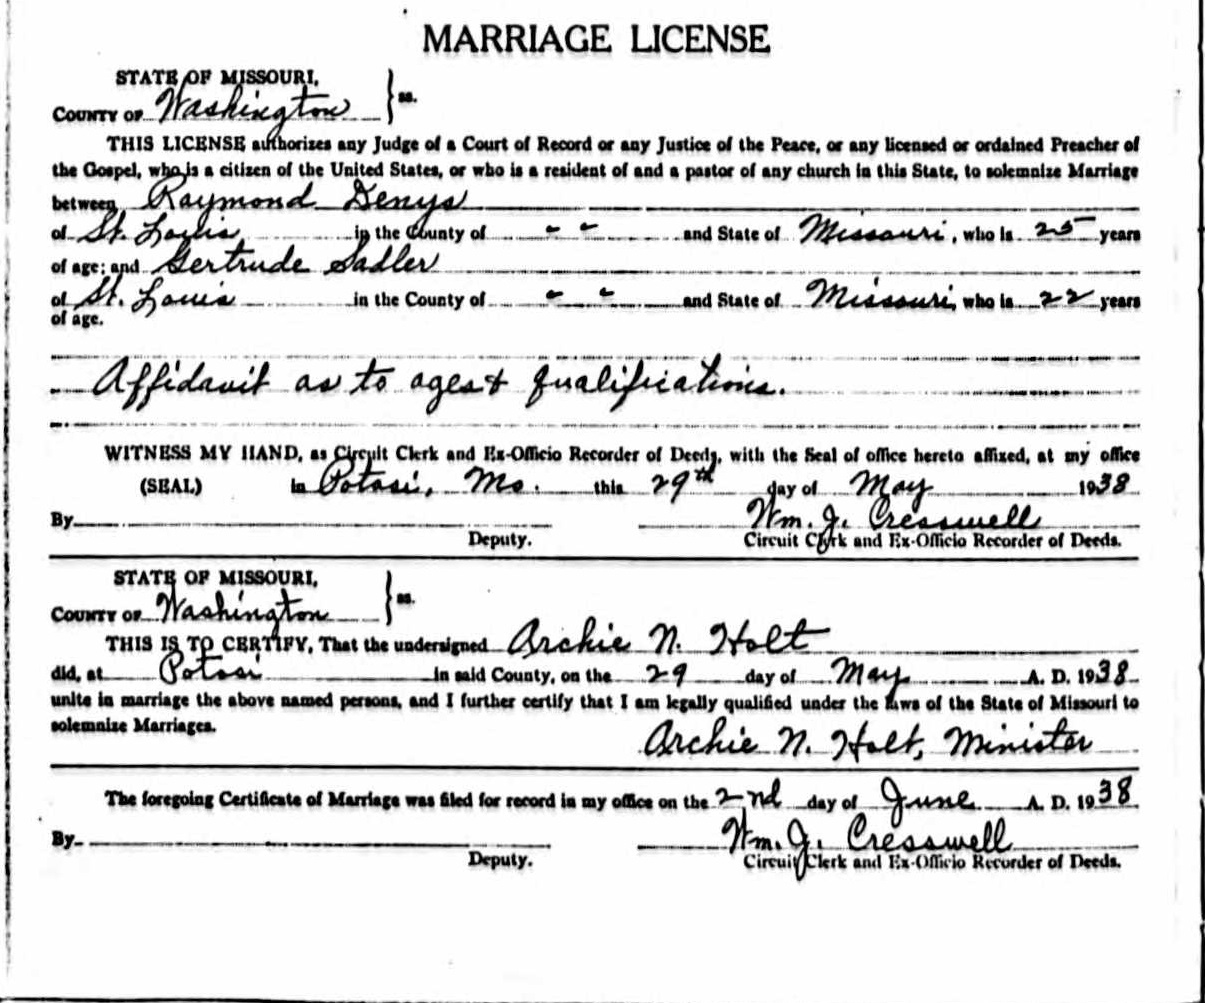 MARRIAGE LICENSE
STATE OF MISSOURI,
COUNTY OF Washington } ss.
THIS LICENSE authorizes any Judge of a Court of Record or any Justice of the Peace, or any licensed or ordained Preacher of
the Gospel, who is a citizen of the United States, or who is a resident of and a pastor of any church in this State, to solemnize Marriage
between Raymond Denys
of St. Louis in the County of " " and State of Missouri, who is 25 years
of age; and Gertrude Sadler
of St. Louis in the County of " " and State of Missouri, who is 22 years
of age.
Affidavit as to ages & qualifications.
WITNESS MY HAND, as Circuit Clerk and Ex-Officio Recorder of Deeds, with the Seal of office hereto affixed, at my office
(SEAL) in Potosi, Mo. this 29th day of May 1938
By Wm. J. Cresswell
Deputy. Circuit Clerk and Ex-Officio Recorder of Deeds.
STATE OF MISSOURI,
COUNTY OF Washington } ss.
THIS IS TO CERTIFY, That the undersigned Archie N. Holt
did, at Potosi in said County, on the 29 day of May A. D. 1938
unite in marriage the above named persons, and I further certify that I am legally qualified under the laws of the State of Missouri to
solemnize Marriages.
Archie N. Holt, Minister
The foregoing Certificate of Marriage was filed for record in my office on the 2nd day of June A. D. 1938
By Wm. J. Cresswell
Deputy. Circuit Clerk and Ex-Officio Recorder of Deeds.